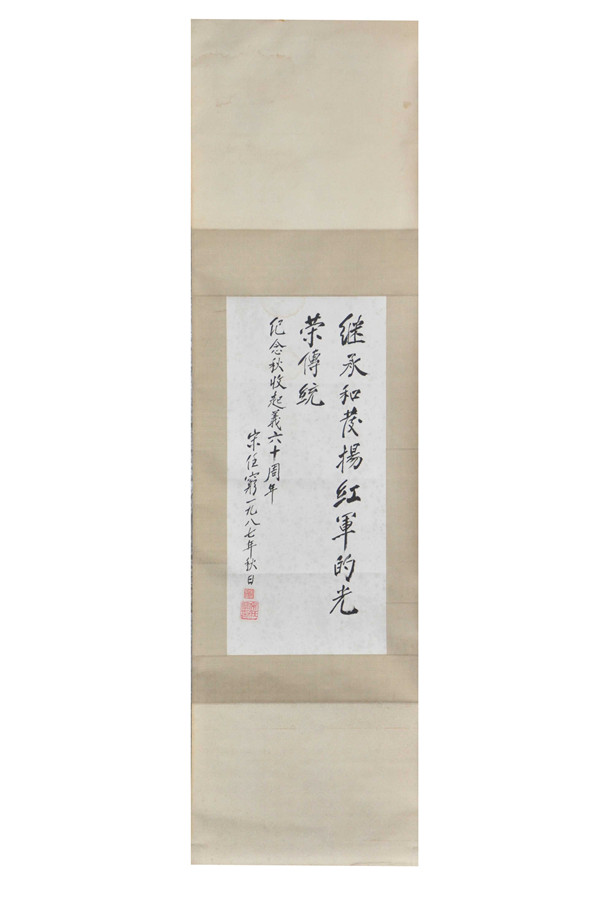 继承和发揚红軍的光
荣傳统
纪念秋收起義六十周年
宋任窮一九八七年秋日